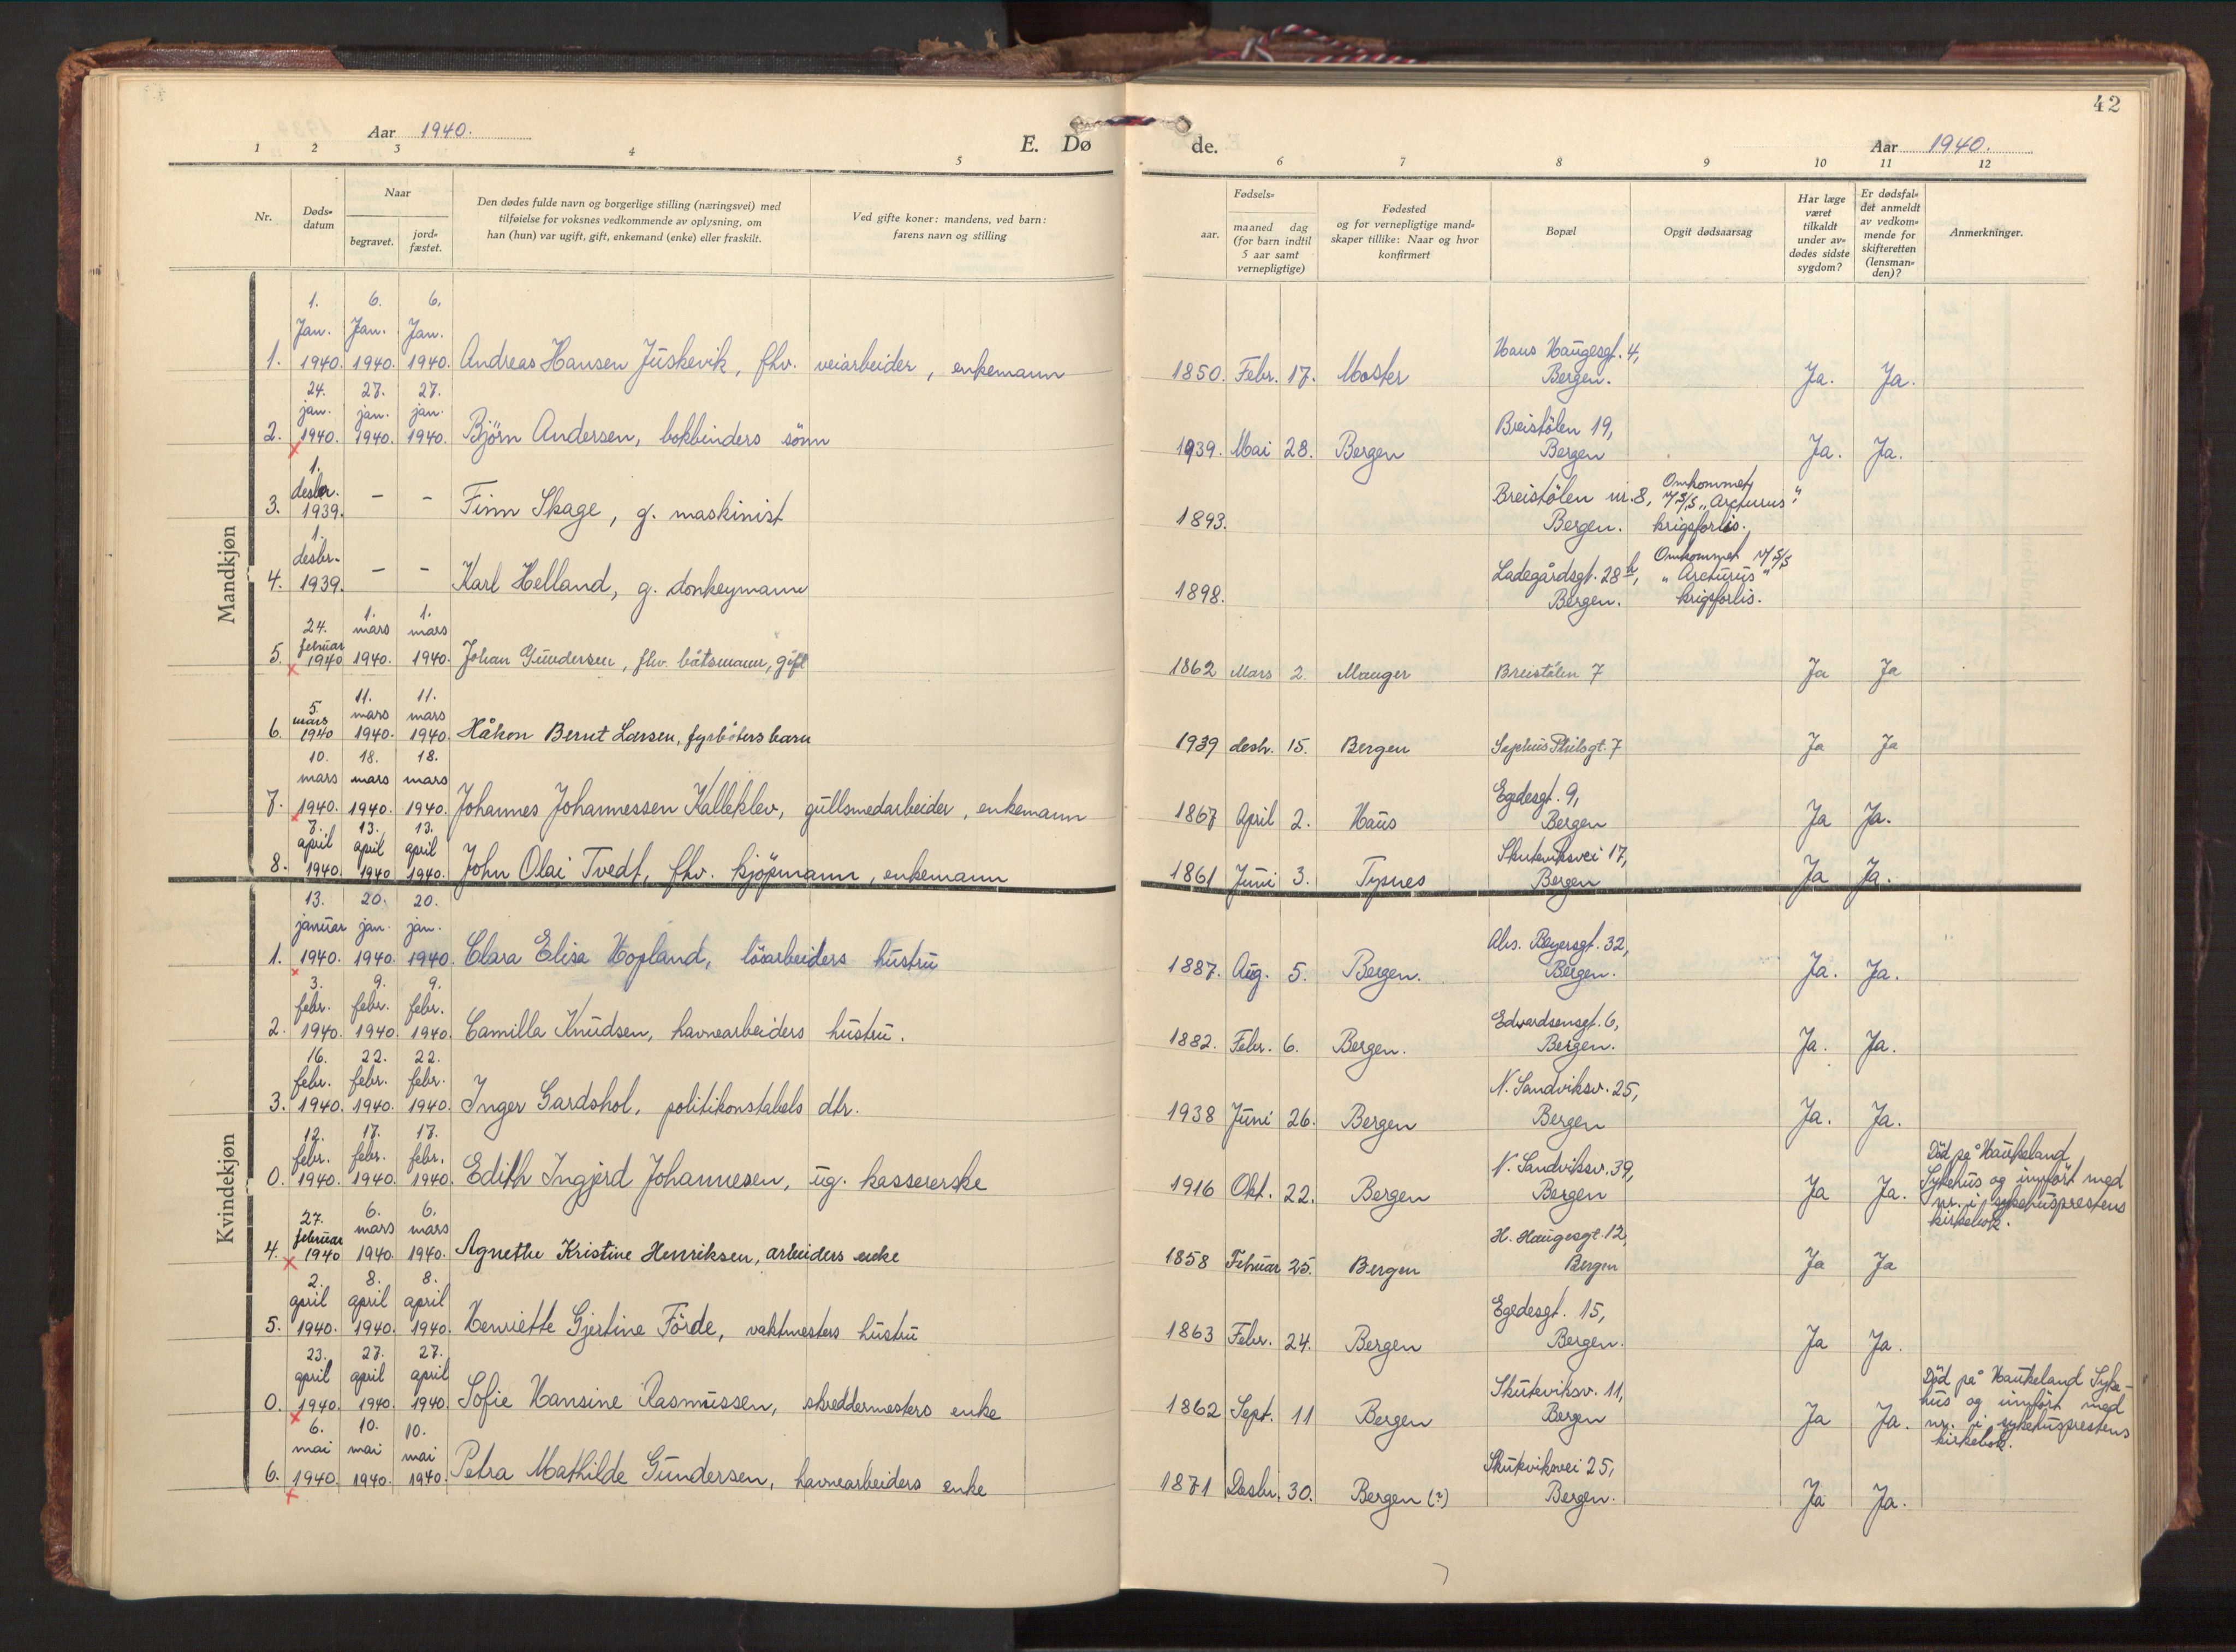 42
Aar 1940.
E. Dø de.
Aar 1940.
1 2 3 4 5 6 7 8 9 10 11 12
Nr.
Døds-
datum
Naar
begravet.
jord-
fæstet.
Den dødes fulde navn og borgerlige stilling (næringsvei) med
tilføielse for voksnes vedkommende av oplysning, om
han (hun) var ugift, gift, enkemand (enke) eller fraskilt.
Ved gifte koner: mandens, ved barn:
farens navn og stilling
Fødsels-
aar.
maaned dag
(for barn indtil
5 aar samt
vernepligtige)
Fødested
og for vernepligtige mand-
skaper tillike: Naar og hvor
konfirmert
Bopæl
Opgit dødsaarsag
Har læge
været
tilkaldt
under av-
dødes sidste
sygdom?
Er dødsfal-
det anmeldt
av vedkom-
mende for
skifteretten
(lensman-
den)?
Anmerkninger.
Mandkjøn
1. 6. 6.
Jan. Jan. Jan.
1. 1940. 1940. 1940. Andreas Hansen Juskevik, fhv. veiarbeider, enkemann 1850. Febr. 17. Moster Hans Haugesgt. 4, Bergen. Ja. Ja.
24. 27. 27.
jan. jan. jan.
2. 1940. 1940. 1940. Björn Andersen, bokbinders sönn 1939. Mai 28. Bergen Breistölen 19, Bergen Ja. Ja.
1.
desbr.
3. 1939. - - Finn Skage, g. maskinist 1893. Breistölen nr. 8, Bergen. Omkommet m/ S/S "Arcturus" krigsforlis.
1.
desbr.
4. 1939. - - Karl Helland, g. donkeymann 1898. Ladegårdsgt. 28 b, Bergen. Omkommet m/ S/S "Arcturus" krigsforlis.
24. 1. 1.
februar mars mars
5. 1940 1940. 1940. Johan Gundersen, fhv. båtsmann, gift 1862 Mars 2. Manger Breistölen 7 Ja Ja
5. 11. 11.
mars mars mars
6. 1940 1940. 1940. Håkon Bernt Larsen, fyrböters barn 1939 desb. 15. Bergen Sophus Pihlsgt. 7 Ja Ja
10. 18. 18.
mars mars mars
7. 1940. 1940. 1940. Johannes Johannessen Kalleklev, gullsmedarbeider, enkemann 1867 April 2. Haus Egedesgt. 9, Bergen Ja Ja.
7. 13. 13.
april april april
8. 1940. 1940 1940. John Olai Tvedt, fhv. kjöpmann, enkemann 1861 Juni 3. Tysnes Skuteviksvei 17, Bergen Ja Ja.
Kvindekjøn
13. 20. 20.
januar jan. jan.
1. 1940. 1940. 1940. Clara Elisa Hopland, lösarbeiders hustru 1887. Aug. 5. Bergen. Abs. Beyersgt. 32, Bergen. Ja. Ja.
3. 9. 9.
febr. febr. febr.
2. 1940. 1940. 1940. Camilla Knudsen, havnearbeiders hustru. 1882. Febr. 6. Bergen. Edvardsensgt. 6, Bergen. Ja. Ja.
16. 22. 22.
febr. febr. febr.
3. 1940. 1940. 1940. Inger Gardshol, politikonstabels dtr. 1938 Juni 26. Bergen N. Sandviksv. 25, Bergen Ja. Ja.
12. 17. 17.
febr. febr. febr.
0. 1940. 1940. 1940. Edith Ingjerd Johannesen, ug. kassererske 1916 Okt. 22. Bergen N. Sandviksv. 39, Bergen Ja Ja.
Död på Haukeland
Sykehus og innfört med
nr. i sykehusprestens
kirkebok.
27. 6. 6.
februar mars mars
4. 1940 1940. 1940. Agnethe Kristine Henriksen, arbeiders enke 1858 Februar 25. Bergen H. Haugesgt. 12, Bergen Ja Ja
2. 8. 8.
april april april
5. 1940. 1940. 1940. Henriette Gjertine Förde, vaktmesters hustru 1863 Febr. 24. Bergen Egedesgt. 15, Bergen. Ja Ja.
23. 27. 27.
april april april
0. 1940. 1940. 1940. Sofie Hansine Rasmussen, skreddermesters enke 1862 Sept. 11 Bergen Skuteviksv. 11, Bergen Ja Ja.
Död på Haukeland Syke-
hus og innfört med
nr. i sykehusprestens
kirkebok.
6. 10. 10.
mai mai mai
6. 1940. 1940. 1940. Petra Mathilde Gundersen, havnearbeiders enke 1871 Desbr. 30. Bergen (?) Skuteviksvei 25, Bergen. Ja Ja.